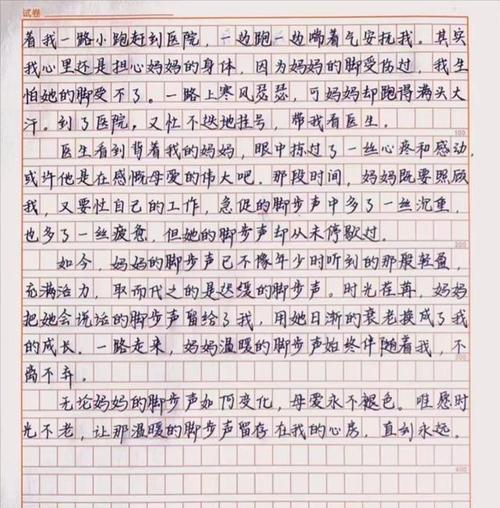 试卷
着我一路小跑赶到医院，一边跑一边喘着气安抚我。其实
我心里还是担心妈妈的身体，因为妈妈的脚受伤过，我生
怕她的脚受不了。一路上寒风瑟瑟，可妈妈却跑得满头大
汗。到了医院，又忙不迭地挂号，带我看医生。
100
医生看到背着我的妈妈，眼中掠过了一丝心疼和感动，
或许他是在感慨母爱的伟大吧。那段时间，妈妈既要照顾
我，又要忙自己的工作，急促的脚步声中多了一丝沉重，
也多了一丝疲惫，但她的脚步声却从未停歇过。
200
如今，妈妈的脚步声已不像年少时听到的那般轻盈，
充满活力，取而代之的是迟缓的脚步声。时光荏苒，妈妈
把她会说话的脚步声留给了我，用她日渐的衰老换成了我
的成长。一路走来，妈妈温暖的脚步声始终伴随着我，不
300
离不弃。
无论妈妈的脚步声如何变化，母爱永不褪色。唯愿时
光不老，让那温暖的脚步声留存在我的心房，直到永远。
400